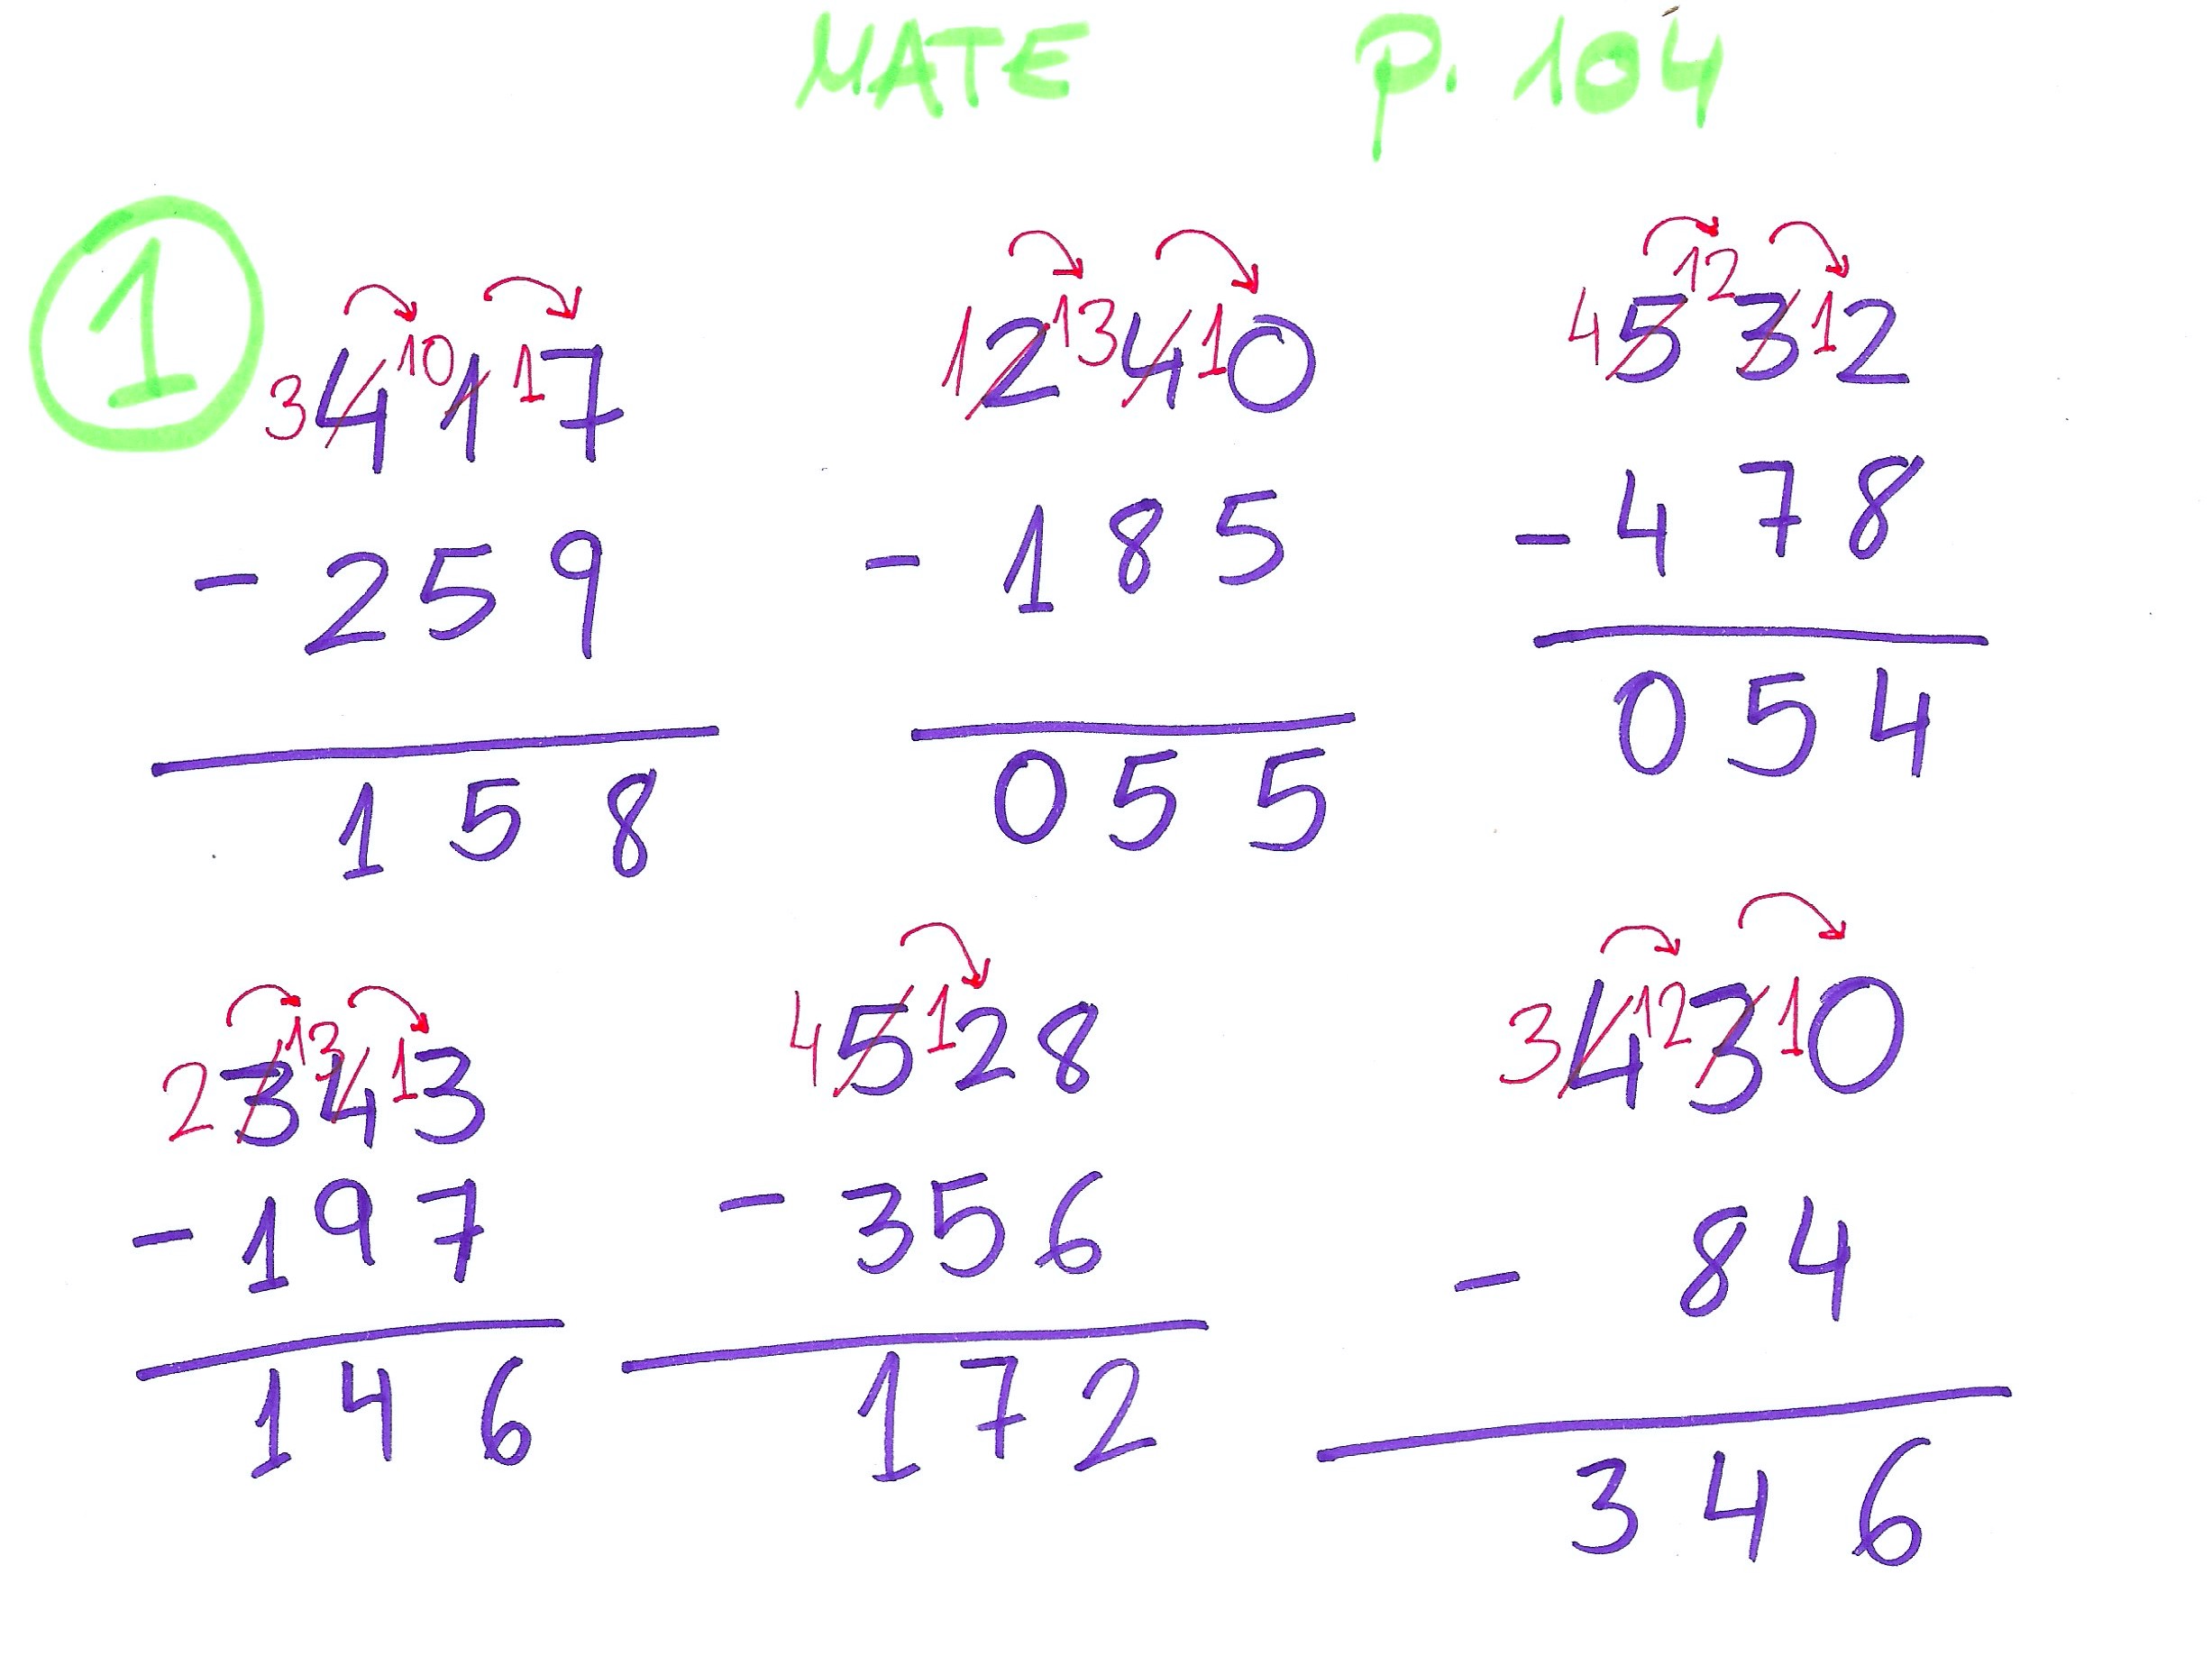 MATE p. 104
1
3 4 10 1 1 7
- 2 5 9
1 5 8
1 2 13 4 1 0
- 1 8 5
0 5 5
4 5 12 3 1 2
- 4 7 8
0 5 4
2 3 13 4 1 3
- 1 9 7
1 4 6
4 5 1 2 8
- 3 5 6
1 7 2
3 4 12 3 1 0
- 8 4
3 4 6